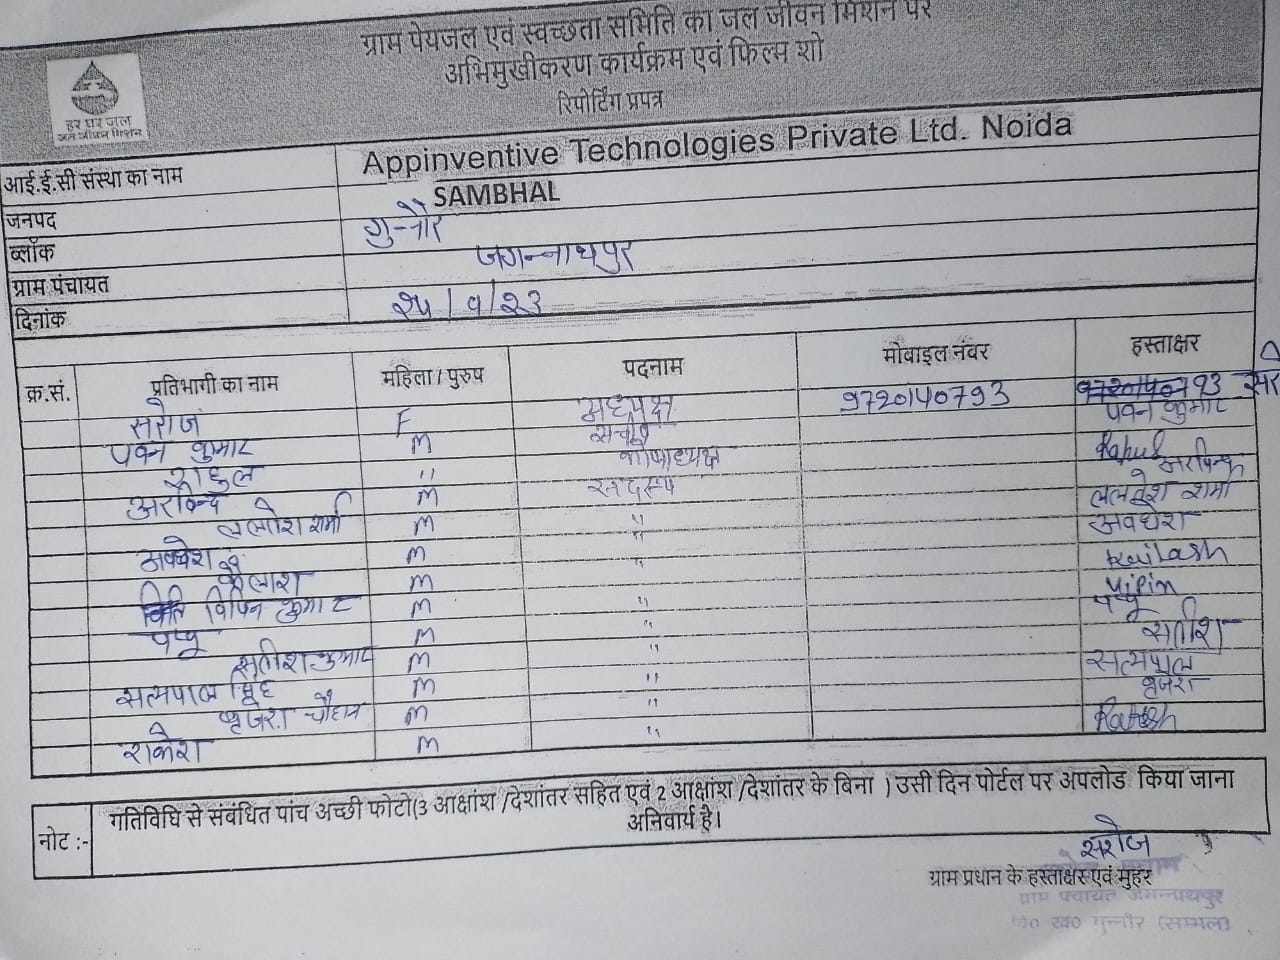 ग्राम पेयजल एवं स्वच्छता समिति का जल जीवन मिशन पर
अभिमुखीकरण कार्यक्रम एवं फिल्म शो
रिपोर्टिंग प्रपत्र
हर घर जल
जल जीवन मिशन
आई.ई.सी संस्था का नाम Appinventive Technologies Private Ltd. Noida
जनपद SAMBHAL
ब्लॉक गुन्नौर
ग्राम पंचायत जगन्नाथपुर
दिनांक २५/१/२३
क्र.सं. प्रतिभागी का नाम महिला / पुरुष पदनाम मोबाइल नंबर हस्ताक्षर
सरोज F अध्यक्ष 9720140793 9720140793
पवन कुमार M सचिव पवन कुमार
राहुल " कोषाध्यक्ष Rahul
अरविन्द M सदस्य अरविन्द
ललतेश शर्मा M " ललतेश शर्मा
अवधेश M " अवधेश
कैलाश M Kailash
विपिन कुमार M " Vipin
पप्पू M " पप्पू
सतीश कुमार M " सतीश
सत्यपाल सिंह M " सत्यपाल
बृजेश चौहान M " बृजेश
राकेश M " Rakesh
नोट :- गतिविधि से संबंधित पांच अच्छी फोटो(3 आक्षांश /देशांतर सहित एवं 2 आक्षांश /देशांतर के बिना ) उसी दिन पोर्टल पर अपलोड किया जाना
अनिवार्य है।
सरोज
ग्राम प्रधान के हस्ताक्षर एवं मुहर
ग्राम पंचायत जगन्नाथपुर
वि० ख० गुन्नौर (सम्भल)